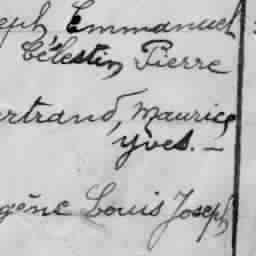 eph, Emmanuel
Célestin, Pierre
ertrand, Maurice
Yves. —
gène Louis Joseph